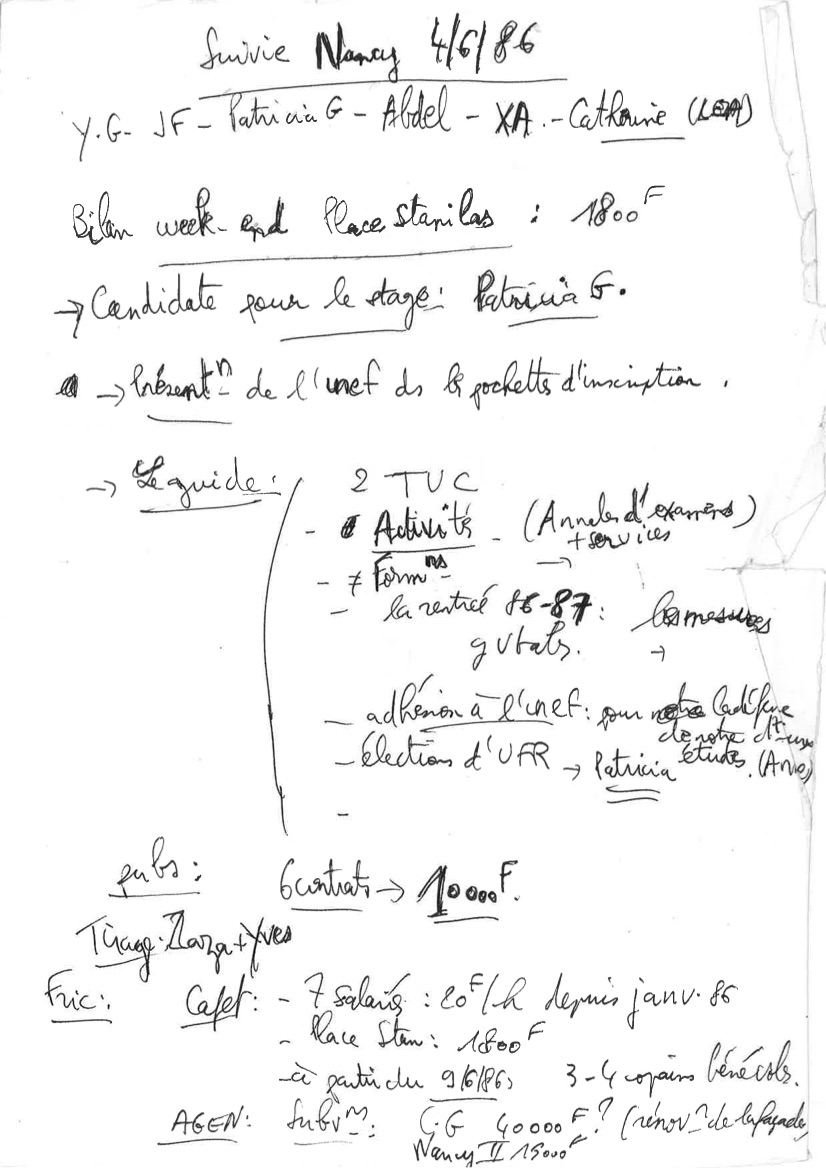 Suivie Nancy 4/6/86
Y.G - JF - Patricia G - Abdel - XA. - Catherine (LEA)
Bilan week-end Place Stanilas : 1800F
→ Candidate pour le stage : Patricia G.
→ Présentn de l'unef ds les pochettes d'inscription.
→ Le guide : 2 TUC
- Activités - (Annales d'examens)
+ services
- ≠ Formns
- la rentrée 86-87 : les mesures
gvtals. →
- adhésion à l'unef : pour la défense
de notre
- élections d'UFR → Patricia études. (Anne)
-
pubs : 6 contrats → 10000F.
Tirage : Zaza + Yves
Fric : Cafet : - 7 salariés : 20F/h depuis janv. 86
- Place Stan : 1800F
- à partir du 9/6/86, 3-4 copains bénévols.
AGEN : Subvn : C.G 40000F ? (rénovn de la façade)
Nancy II 15000F